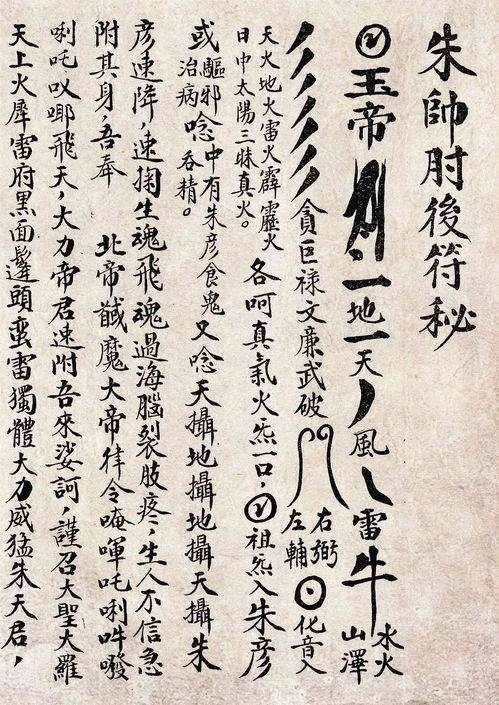 朱帥肘後符秘
玉帝一地一天風雷牛水火山澤
貪巨禄文廉武破右弼左輔化音入
天火地火雷火霹靂火
日中太陽三昧真火。
各呵真氣火炁一口,祖炁入朱彥
或驅邪治病唸中有朱彥食鬼吞精。又唸天攝地攝地攝天攝朱
彥速降,速掏生魂飛魂過海腦裂肢疼,生人不信急
附其身,吾奉 北帝馘魔大帝律令唵喗吒唎吽
唎吒飛天,大力帝君速附吾來娑訶,謹召大聖大羅
天上火犀雷府黑面頭蛮雷獨體大力威猛朱天君,